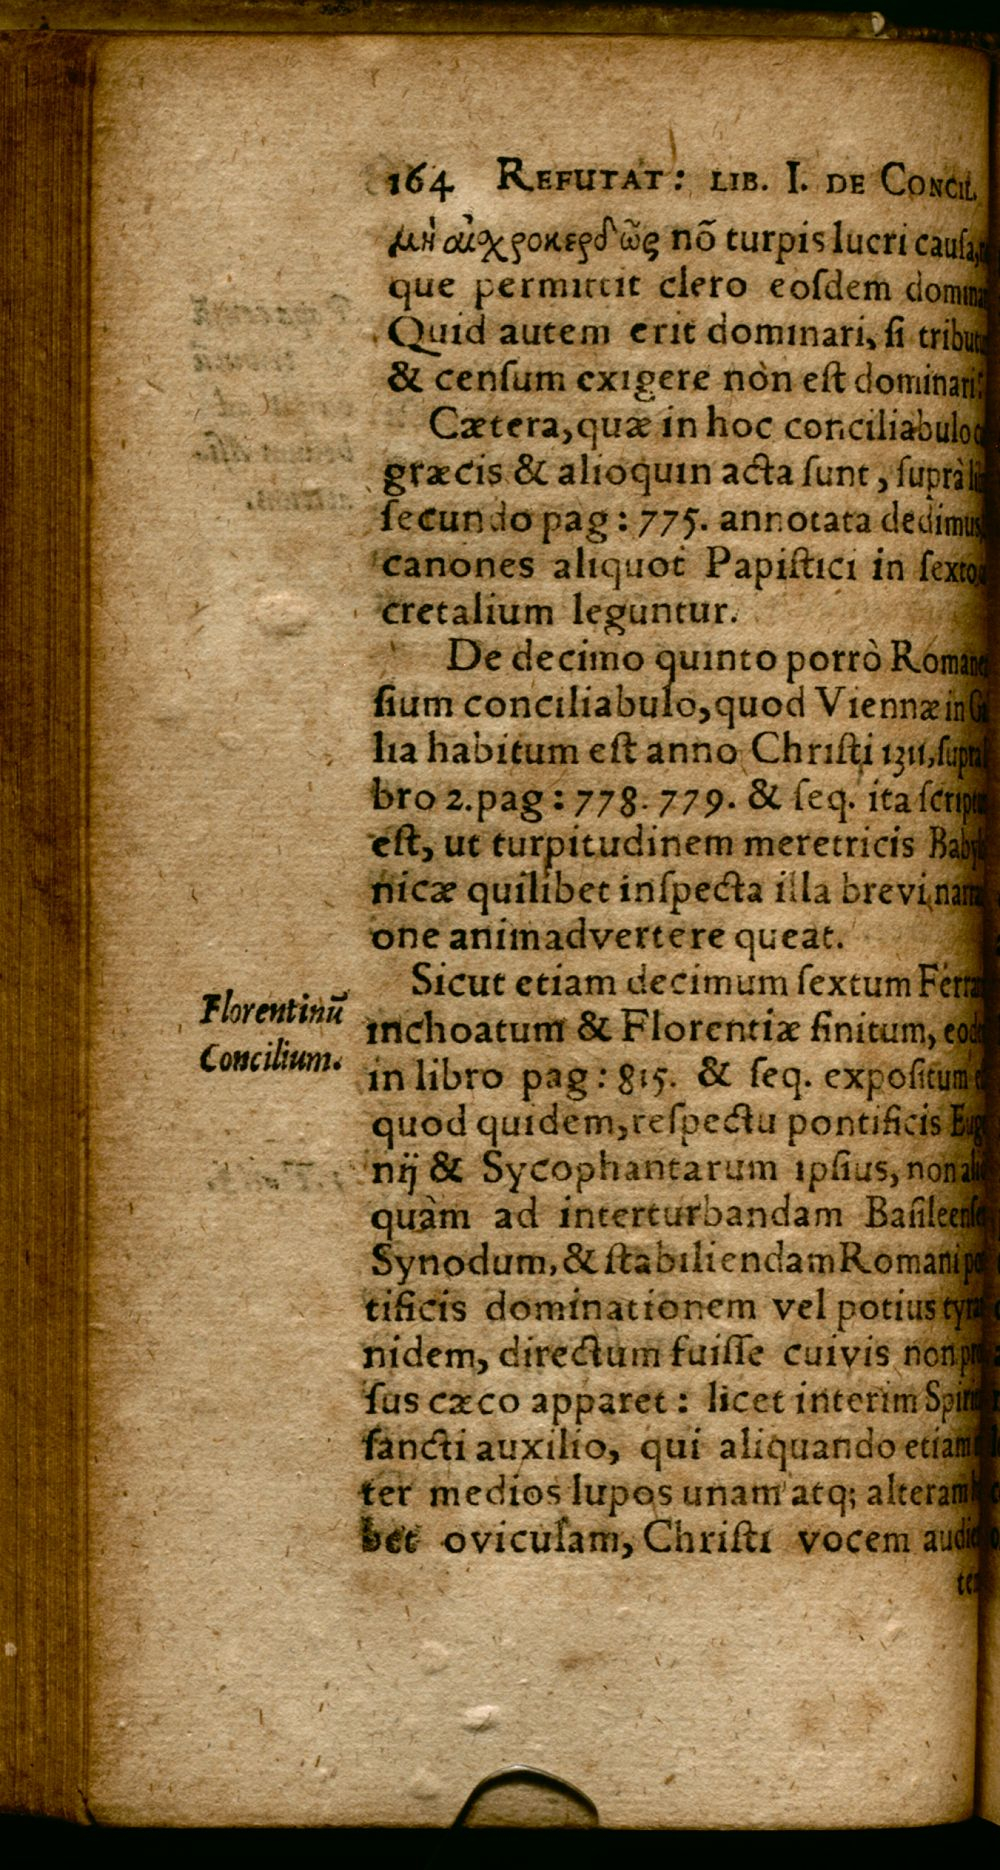 164 REFUTAT: LIB. I. DE CONCIL.
μὴ αἰχροκερδῶς nõ turpis lucri causa,
que permittit clero eosdem
Quid autem erit dominari, si
& censum exigere nòn est dominari?
Cætera, quæ in hoc conciliabulo
græcis & alioquin acta sunt, suprà
secundo pag: 775. annotata dedimus,
canones aliquot Papistici in sexto
cretalium leguntur.
De decimo quinto porrò
sium conciliabulo, quod Viennæ in
lia habitum est anno Christi 1311,
bro 2. pag: 778. 779. & seq. ita
est, ut turpitudinem meretricis
nicæ quilibet inspecta illa brevi
one animadvertere queat.
Sicut etiam decimum sextum
Florentinũ
Concilium.
inchoatum & Florentiæ finitum,
in libro pag: 815. & seq. expositum
quod quidem, respectu pontificis
nij & Sycophantarum ipsius, non
quàm ad interturbandam
Synodum, & stabiliendam Romani
tificis dominationem vel potius
nidem, directum fuisse cuivis non
sus cæco apparet: licet interim
sancti auxilio, qui aliquando etiam
ter medios lupos unam atq; alteram
bet oviculam, Christi vocem